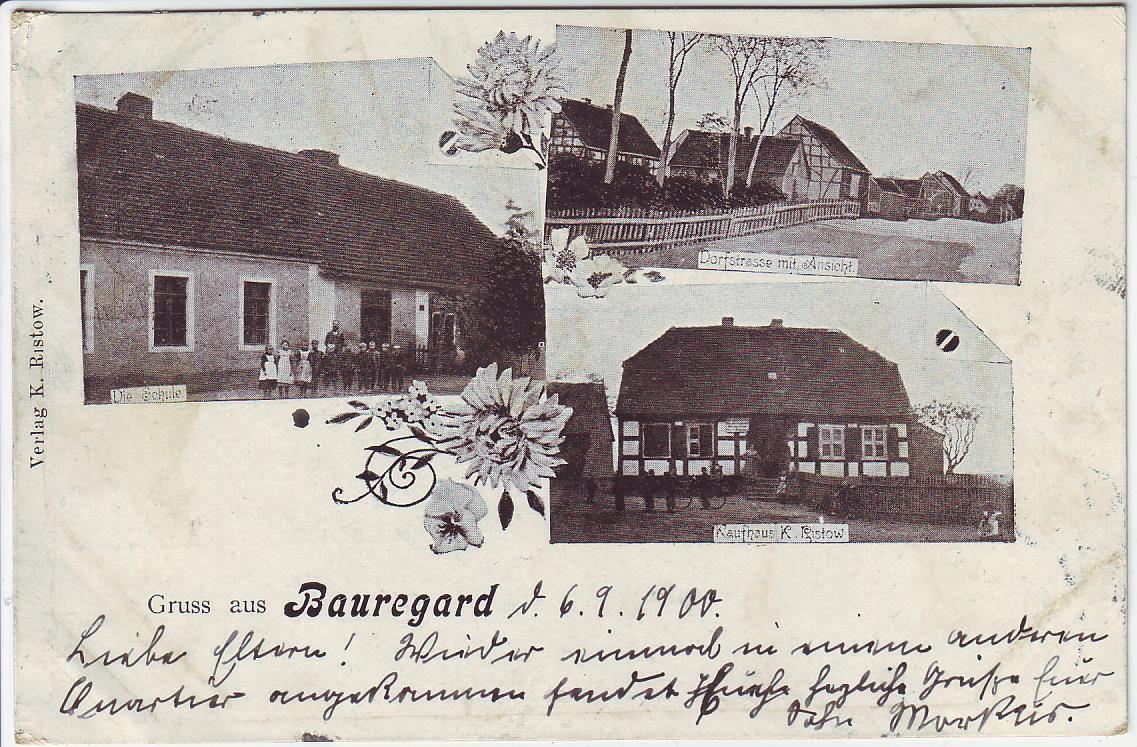 Verlag K. Ristow.
Die Schule
Dorfstrasse mit Ansicht.
Kaufhaus K. Ristow
Gruss aus Bauregard d. 6.9.1900.
Liebe Eltern! Wieder einmal in einem anderen
Quartier angekommen sendet Euch herzliche Grüße Euer
Sohn Markus.